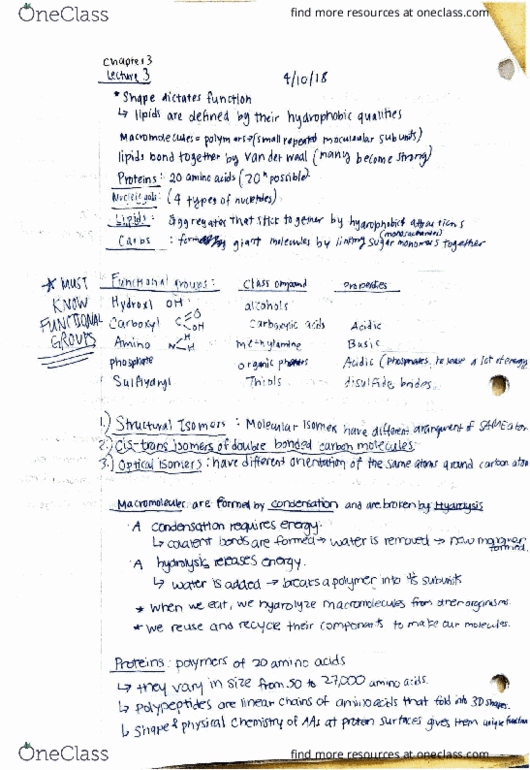 OneClass
find more resources at oneclass.com
Chapter 3
Lecture 3
4/10/18
* Shape dictates function
↳ lipids are defined by their hydrophobic qualities
Macromolecules = polymers → (small repeated molecular subunits)
lipids bond together by Van der waal (many become strong)
Proteins: 20 amino acids (20ⁿ possible)
(4 types of
Lipids: aggregates that stick together by
(monosaccharides)
Carbs: giant molecules by linking sugar monomers together
* MUST KNOW FUNCTIONAL GROUPS
Functional groups: Class properties
Hydroxl OH alcohols
Carboxyl C O OH Carboxylic acids Acidic
Amino N H H methylamine Basic
phosphate organic Acidic (phosphates, release a lot of energy
Sulfhydryl Thiols disulfide
1.) Structural Isomers: Molecular Isomers have different arrangment of SAME atom
2.) Cis-trans isomers of double bonded carbon molecules
3.) Optical isomers: have different orientation of the same atoms around carbon atom
Macromolecules are formed by condensation and are broken by
· A condensation requires energy.
↳ covalent bonds are formed → water is removed → new formed.
· A hydrolysis releases energy.
↳ water is added → breaks a polymer into its subunits
* when we eat, we hydrolyze macromolecules from other organisms.
* we reuse and recycle their components to make our molecules.
Proteins: polymers of 20 amino acids
↳ they vary in size from 50 to 27,000 amino acids.
↳ polypeptides are linear chains of amino acids that fold into 3D shapes.
↳ shape & physical chemistry of AAs at protein surfaces gives them unique function
OneClass
find more resources at oneclass.com